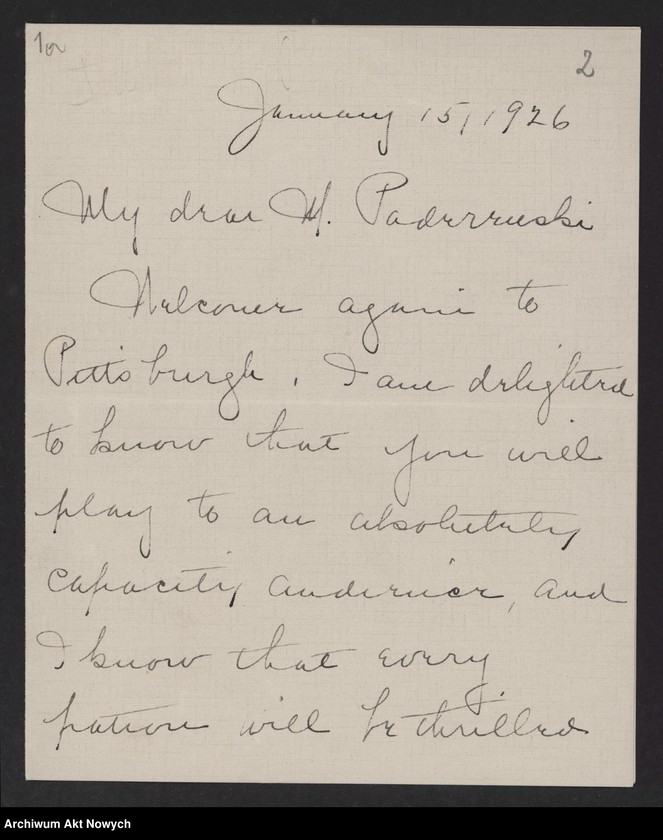 1a
2
January 15, 1926
My dear M. Paderewski
Welcome again to
Pittsburgh. I am delighted
to know that you will
play to an absolutely
capacity audience, and
I know that every
patron will be thrilled
Archiwum Akt Nowych